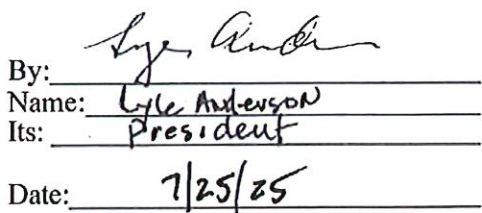 By: Lyle Anderson
Name: Lyle Anderson
Its: President
Date: 7/25/25